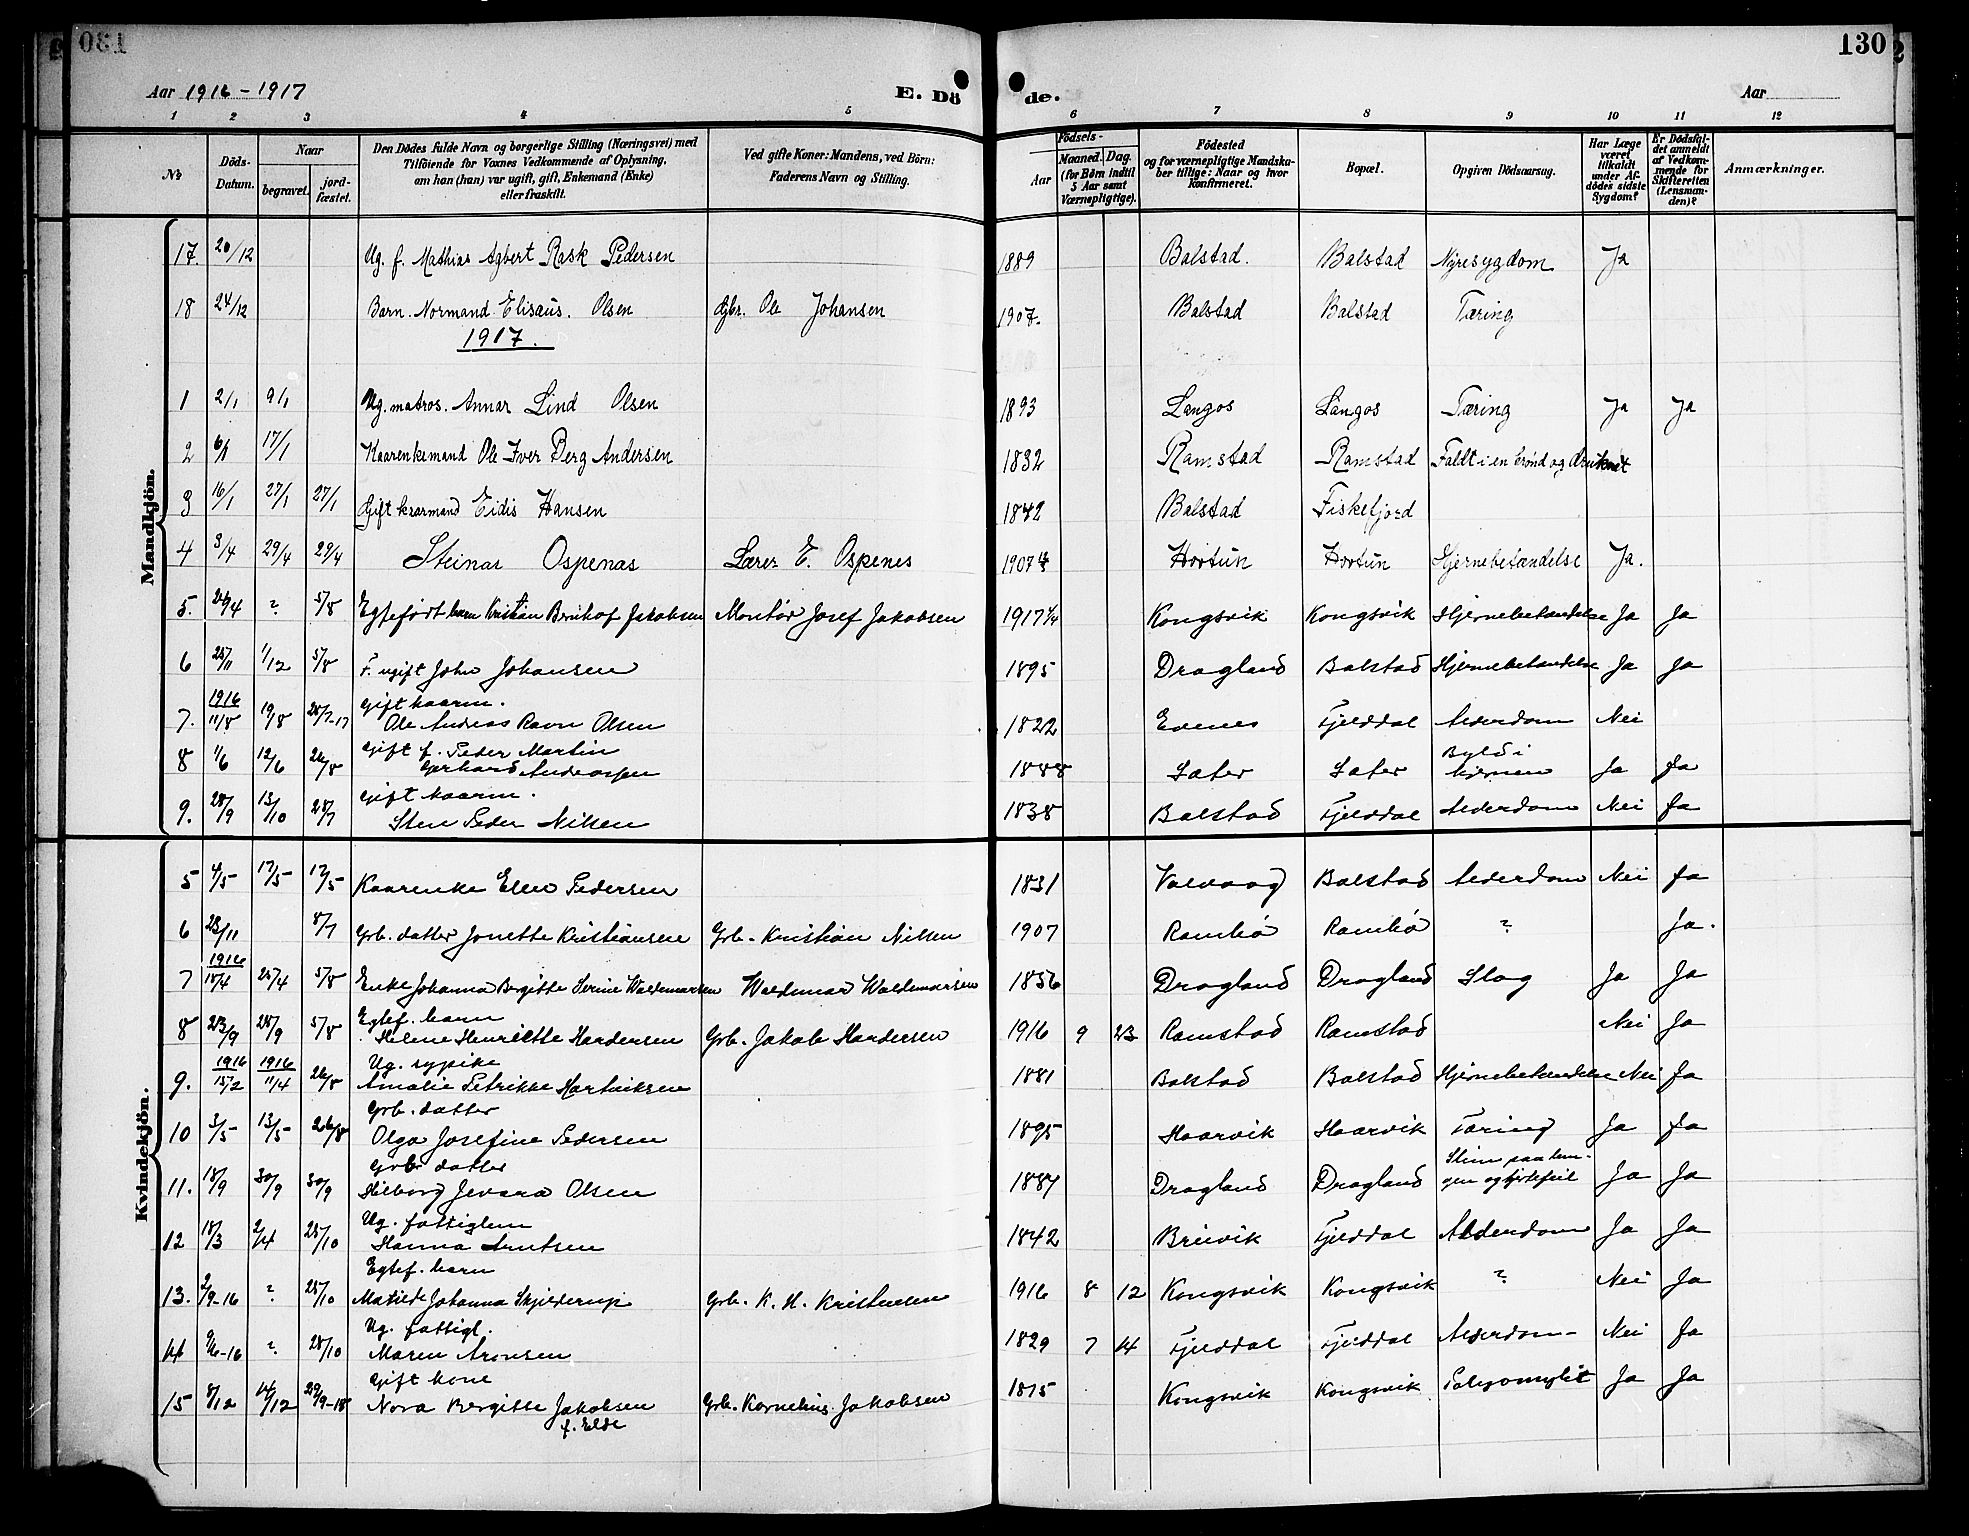 130
Aar 1916 - 1917
E. Dö de.
Aar
1 2 3 4 5 6 7 8 9 10 11 12
№
Döds-Datum.
Naar
begravet.
jord-fæstet.
Den Dödes fulde Navn og borgerlige Stilling (Næringsvei) med
Tilföiende for Voxnes Vedkommende af Oplysning,
om han (hun) var ugift, gift, Enkemand (Enke)
eller fraskilt.
Ved gifte Koner: Mandens, ved Börn:
Faderens Navn og Stilling.
Födsels-
Aar
Maaned. Dag.
(for Börn indtil
5 Aar samt
Værnepligtige).
Födested
og for værnepligtige Mandska-
ber tillige: Naar og hvor
konfirmeret.
Bopæl.
Opgiven Dödsaarsag.
Har Læge
været
tilkaldt
under Af-
dödes sidste
Sygdom?
Er Dödsfal-
det anmeldt
af Vedkom-
mende for
Skifteretten
(Lensman-
den)?
Anmærkninger.
Mandkjön.
17. 20/12 Ug. f. Mathias Agbert Rask Pedersen 1889 Balstad. Balstad Nyresygdom Ja
18 24/12 Barn. Normand Elisæus. Olsen Gbr. Ole Johansen 1907. Balstad Balstad Tæring
1917.
1 2/1 9/1 Ug. matros. Annar Lind Olsen 1893 Langos Langos Tæring Ja Ja
2 6/1 17/1 Kaarenkemand Ole Iver Berg Andersen 1832 Ramstad Ramstad Faldt i en brønd og druknet
3 16/1 27/1 27/1 Gift kaarmand Eidis Hansen 1842 Balstad Fiskefjord
4 3/4 29/4 29/4 Steinar Ospenas Lærer E. Ospenes 1907 Hovtun Hovtun Hjernebetændelse Ja.
5. ? 5/8 Egtefødt barn Kristian Brinhof Jakobsen Montør Josef Jakobsen 1917 Kongsvik Kongsvik Hjernebetændelse Ja Ja
6 25/11 1/12 5/8 F. ugift John Johansen 1895 Dragland Balstad Hjernebetændelse Ja Ja
1916 Gift kaarm.
7. 11/8 19/8 28/7-17 Ole Andreas Ravn Olsen 1822 Evenes Fjelddal Alderdom Nei
Gift f. Peder Martin Byld i
8 1/6 12/6 26/8 Gerhard Andreassen 1888 Sater Sater hjernen Ja Ja
Gift kaarm.
9. 28/9 13/10 28/7 Sten Peder Nilsen 1838 Balstad Fjelddal Alderdom Nei Ja
Kvindekjön.
5 4/5 17/5 17/5 Kaarenke Ellen Pedersen 1831 Valvaag Balstad Alderdom Nei Ja
6 23/11 8/7 Grb. datter Jonette Kristiansen Grb. Kristian Nilsen 1907 Rambø Rambø ? Ja.
1916
7 18/4 25/4 5/8 Enke Johanna Birgitte Serine Waldemarsen Waldemar Waldemarsen 1856 Dragland Dragland Slag Ja Ja
Egtef. barn
8 23/9 28/9 5/8 Helene Henriette Hardersen Grb. Jakob Hardersen 1916 9 23 Ramstad Ramstad Nei Ja
1916 1916 Ug. sypike
9. 15/2 11/4 26/8 Amalie Petrikke Hartviksen 1881 Balstad Balstad Hjernebetændelse Nei Ja
Grb. datter
10 3/5 13/5 26/8 Olga Josefine Pedersen 1895 Haarvik Haarvik Tæring Ja Ja
Grb. datter
11. 18/9 30/9 30/9 Hilborg Jevara Olsen 1887 Dragland Dragland Slim paa lun-
gen og hjertefeil Ja Ja
Ug. fattiglem
12 18/3 2/4 28/10 Hanna Arntsen 1842 Breivik Fjelddal Alderdom Ja Ja
Egtef. barn
13. 2/9-16 ? 28/10 Matilde Johanna Skjelderup Grb. K. H. Kristensen 1916 8 12 Kongsvik Kongsvik ? Nei Ja
Ug. fattigl.
14 ? 28/10 Maren Aronsen 1829 7 14 Fjelddal Fjelddal Alderdom Nei Ja
Gift kone
15 8/12 14/12 29/9-18 Nora Bergitte Jakobsen Grb. Kornelius Jakobsen 1875 Kongsvik Kongsvik Ja Ja
f. Elde